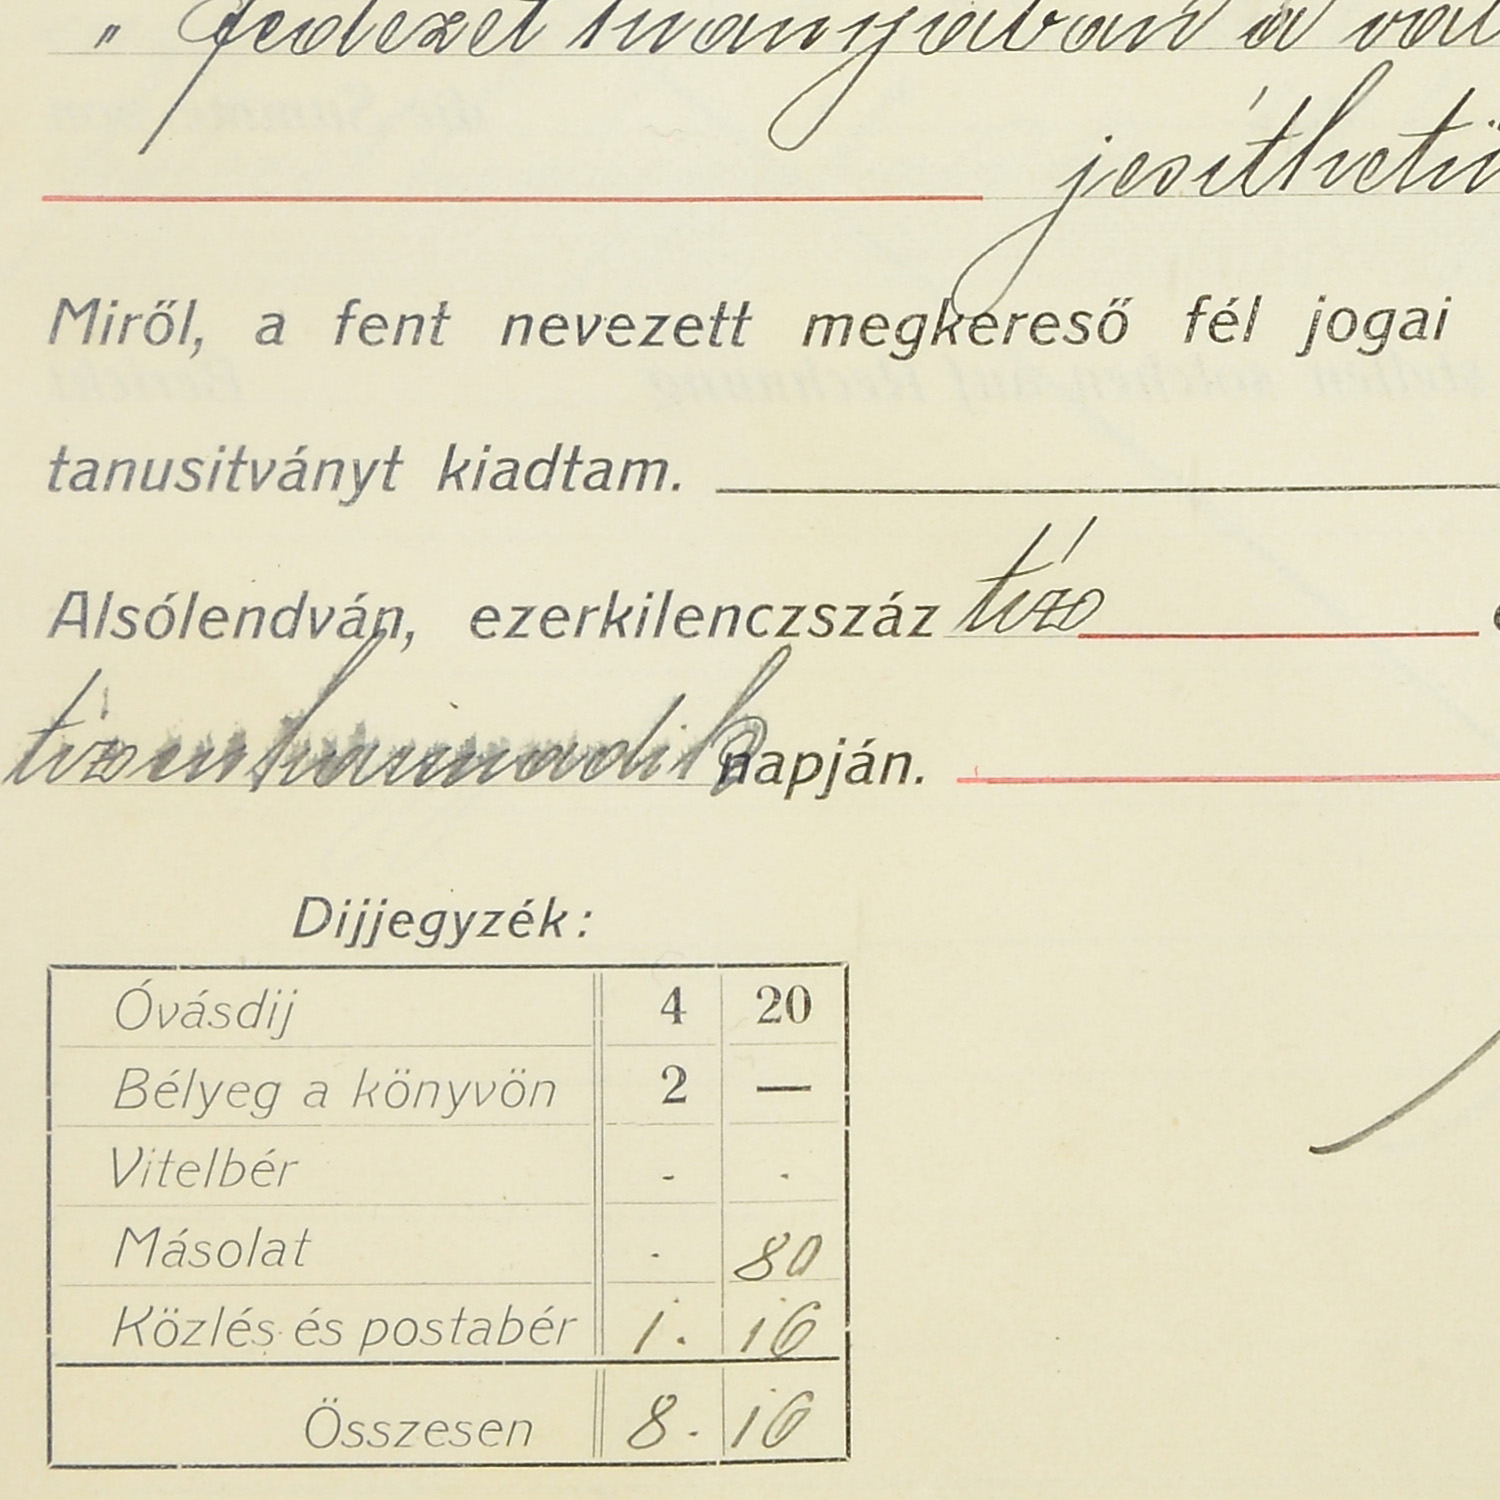 " fedezet hiányában a vál
jesíthetü
Miről, a fent nevezett megkereső fél jogai
tanusitványt kiadtam.
Alsólendván, ezerkilenczszáz tíz
tizenharmadik napján.
Dijjegyzék:
Óvásdij 4 20
Bélyeg a könyvön 2 —
Vitelbér - .
Másolat . 80
Közlés és postabér 1. 16
Összesen 8. 16